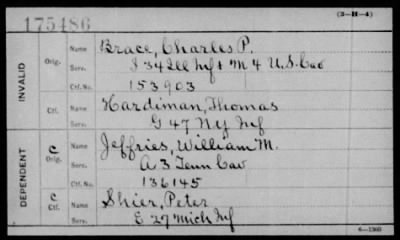 175486
(3—H—4)
INVALID
Orig.
Name Brace, Charles P.
Serv. I 34 Ill Inf & M 4 U.S. Cav
Ctf. No. 153903
Ctf.
Name Hardiman, Thomas
Serv. G 47 NY Inf
DEPENDENT
C
Orig.
Name Jeffries, William M.
Serv. A 3 Tenn Cav
Ctf. No. 136145
C
Ctf.
Name Shier, Peter
Serv. E 27 Mich Inf
6—1360